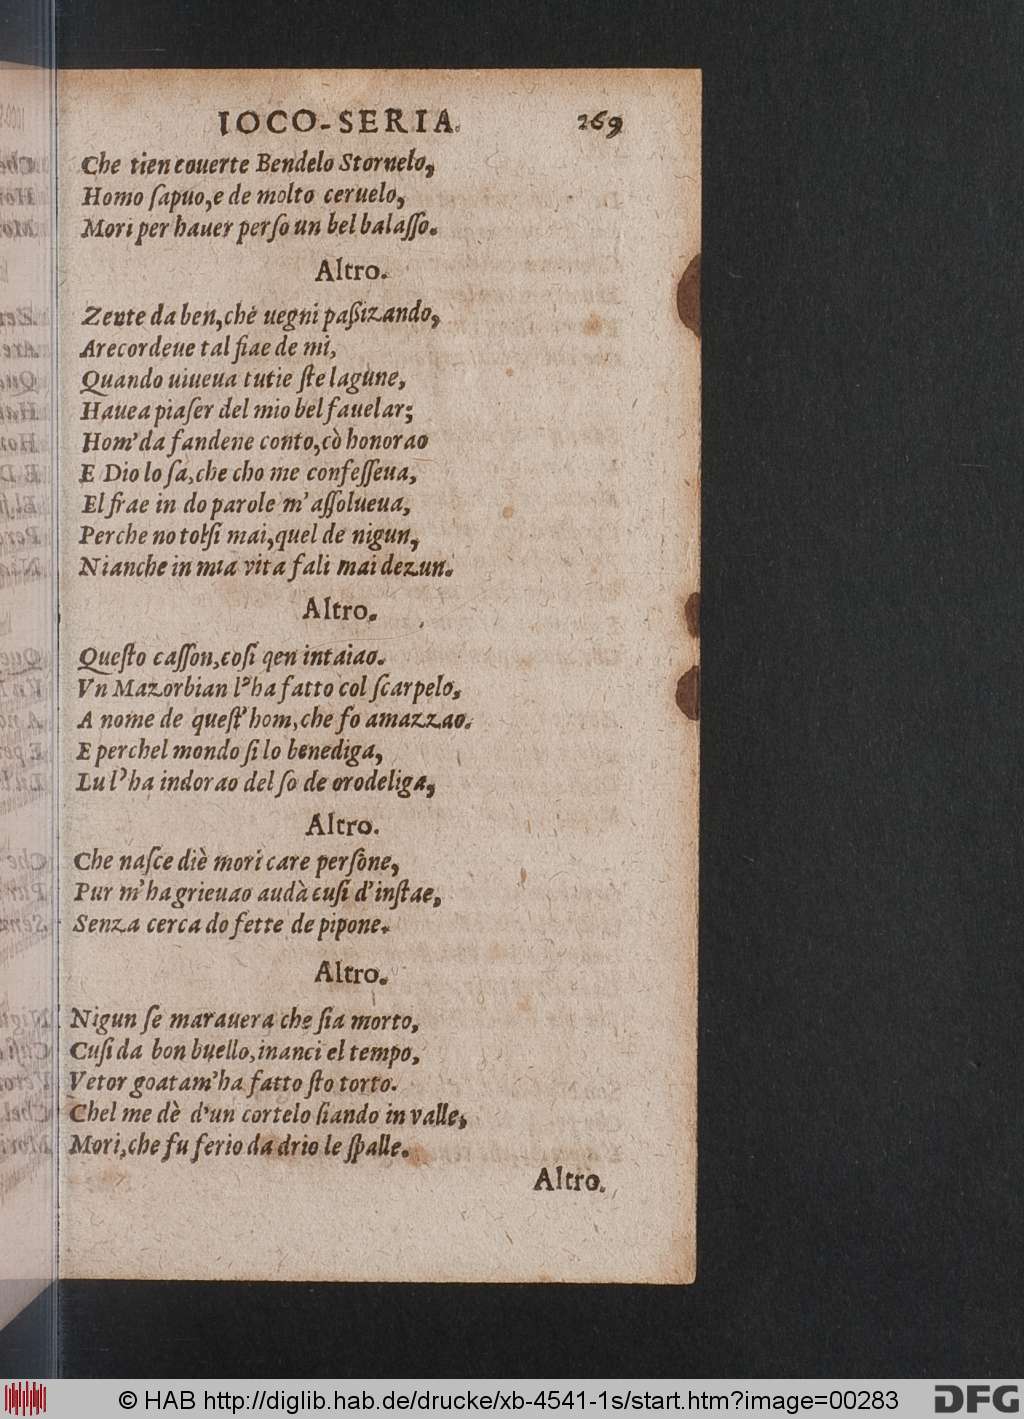 IOCO-SERIA. 269
Che tien couerte Bendelo Storuelo,
Homo ſapuo, e de molto ceruelo,
Mori per hauer perſo un bel balaſſo.
Altro.
Zente da ben, che uegni paßizando,
Arecordeue tal fiae de mi,
Quando uiueua tutie ſte lagune,
Hauea piaſer del mio bel fauelar;
Hom' da fandene conto, cò honorao
E Dio lo ſa, che cho me confeſſeua,
El frae in do parole m' aſſolueua,
Perche no tolſi mai, quel de nigun,
Nianche in mia vita fali mai dezun.
Altro.
Queſto caſſon, coſi qen intaiao.
Vn Mazorbian l'ha fatto col ſcarpelo,
A nome de queſt' hom, che fo amazzao.
E perchel mondo ſi lo benediga,
Lu l'ha indorao del ſo de orodeliga,
Altro.
Che naſce diè mori care perſone,
Pur m'ha grieuao audà cuſi d'inſtae,
Senza cerca do fette de pipone.
Altro.
Nigun ſe marauera che ſia morto,
Cuſi da bon buello, inanci el tempo,
Vetor goatam'ha fatto ſto torto.
Chel me dè d'un cortelo ſiando in valle,
Mori, che fu ferio da drio le ſpalle.
Altro.
© HAB http://diglib.hab.de/drucke/xb-4541-1s/start.htm?image=00283
DFG